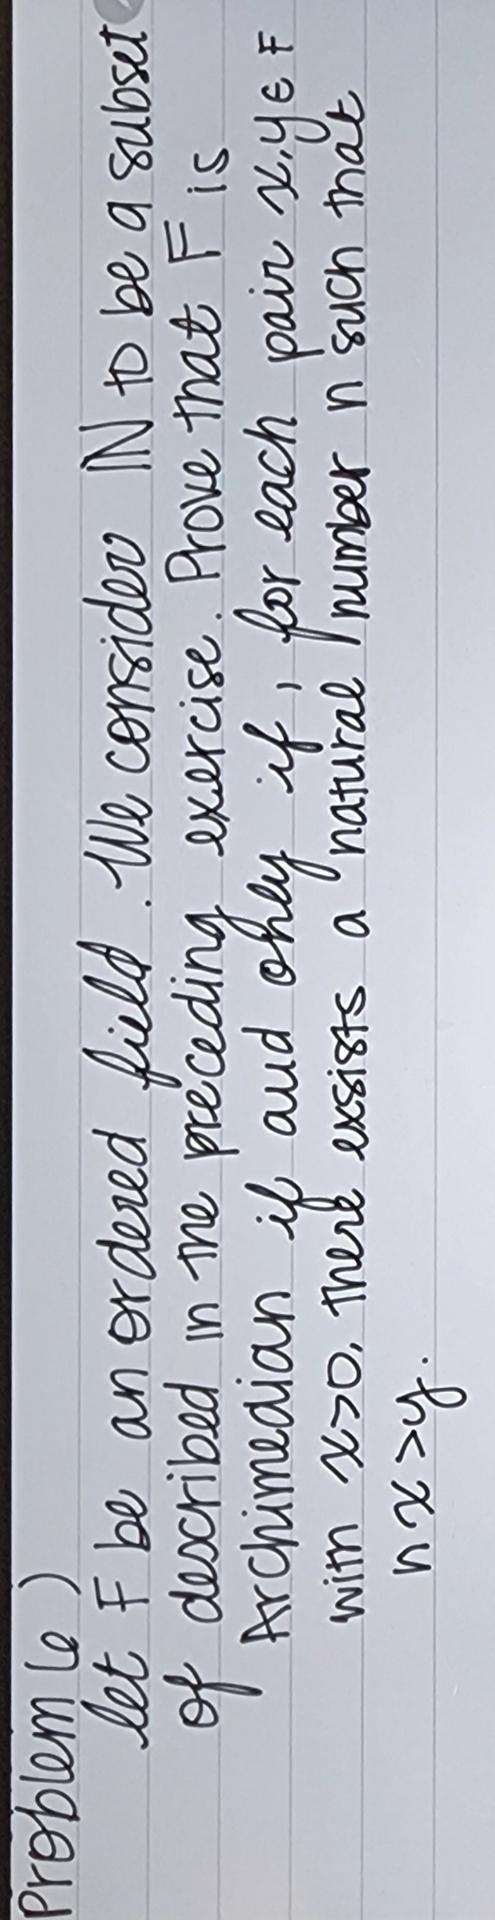 Problem 6)
let F be an ordered field. We consider ℕ to be a subset
of described in the preceding exercise. Prove that F is
Archimedian if and only if, for each pair x,y ∈ F
with x>0, there exsists a natural number n such that
nx>y.